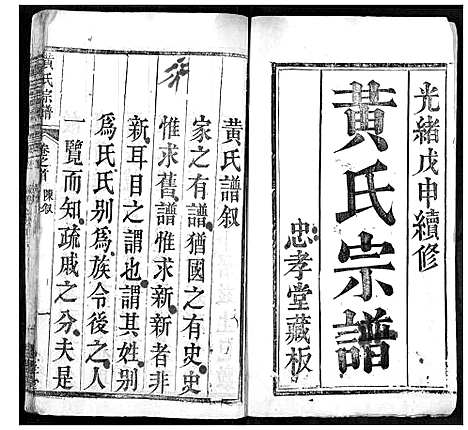 光緒戊申續修
黄氏宗譜
忠孝堂藏板
黄氏譜叙
家之有譜猶國之有史史
惟求舊譜惟求新新者非
新耳目之謂也謂其姓别
爲氏氏别爲族令後之人
一覽而知疏戚之分夫是
黄氏宗譜
卷之首
陳叙